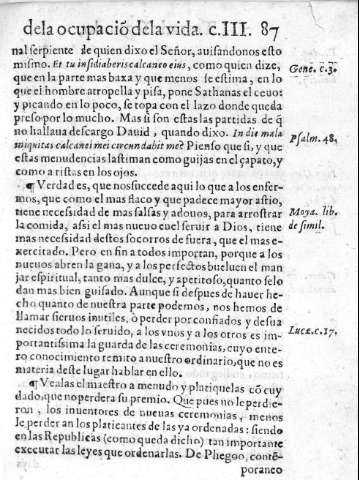 dela ocupació dela vida. c.III. 87
nal serpiente de quien dixo el Señor, auisandonos esto
mismo. Et tu insidiaberis calcaneo eius, como quien dize,
Gene. c.3.
que en la parte mas baxa y que menos se estima, en lo
que el hombre atropella y pisa, pone Sathanas el ceuo:
y picando en lo poco, se topa con el lazo donde queda
preso por lo mucho. Mas si son estas las partidas de q̃
no hallaua descargo Dauid, quando dixo. In die mala
iniquitas calcanei mei circundabit me? Pienso que si, y que
Psalm. 48.
estas menudencias lastiman como guijas en el çapato, y
como aristas en los ojos.
¶ Verdad es, que nos sucede aqui lo que a los enfer-
mos, que como el mas flaco y que padece mayor astio,
tiene necesidad de mas salsas y adouos, para arrostrar
Moya. lib.
la comida, assi el mas nueuo enel seruir a Dios, tiene
de simil.
mas necessidad destos socorros de fuera, que el mas e-
xercitado. Pero en fin a todos importan, porque a los
nueuos abren la gana, y a los perfectos bueluen el man
jar espiritual, tanto mas dulce, y apetitoso, quanto selo
dan mas bien guisado. Aunque si despues de hauer he-
cho quanto de nuestra parte podemos, nos hemos de
llamar sieruos inutiles, ò perder por confiados y desua
Luc. c. 17.
necidos todo lo seruido, a los vnos y a los otros es im-
portantissima la guarda de las ceremonias, cuyo ente-
ro conocimiento remito a nuestro ordinario, que no es
materia deste lugar hablar en ello.
¶ Vealas el maestro a menudo y platiquelas cõ cuy
dado, que no perdera su premio. Que pues no le perdie-
ron, los inuentores de nueuas ceremonias, menos
le perder an los platicantes de las ya ordenadas: siendo
en las Republicas (como queda dicho) tan importante
executar las leyes que ordenarlas. De Pliegoo, contẽ-
poraneo